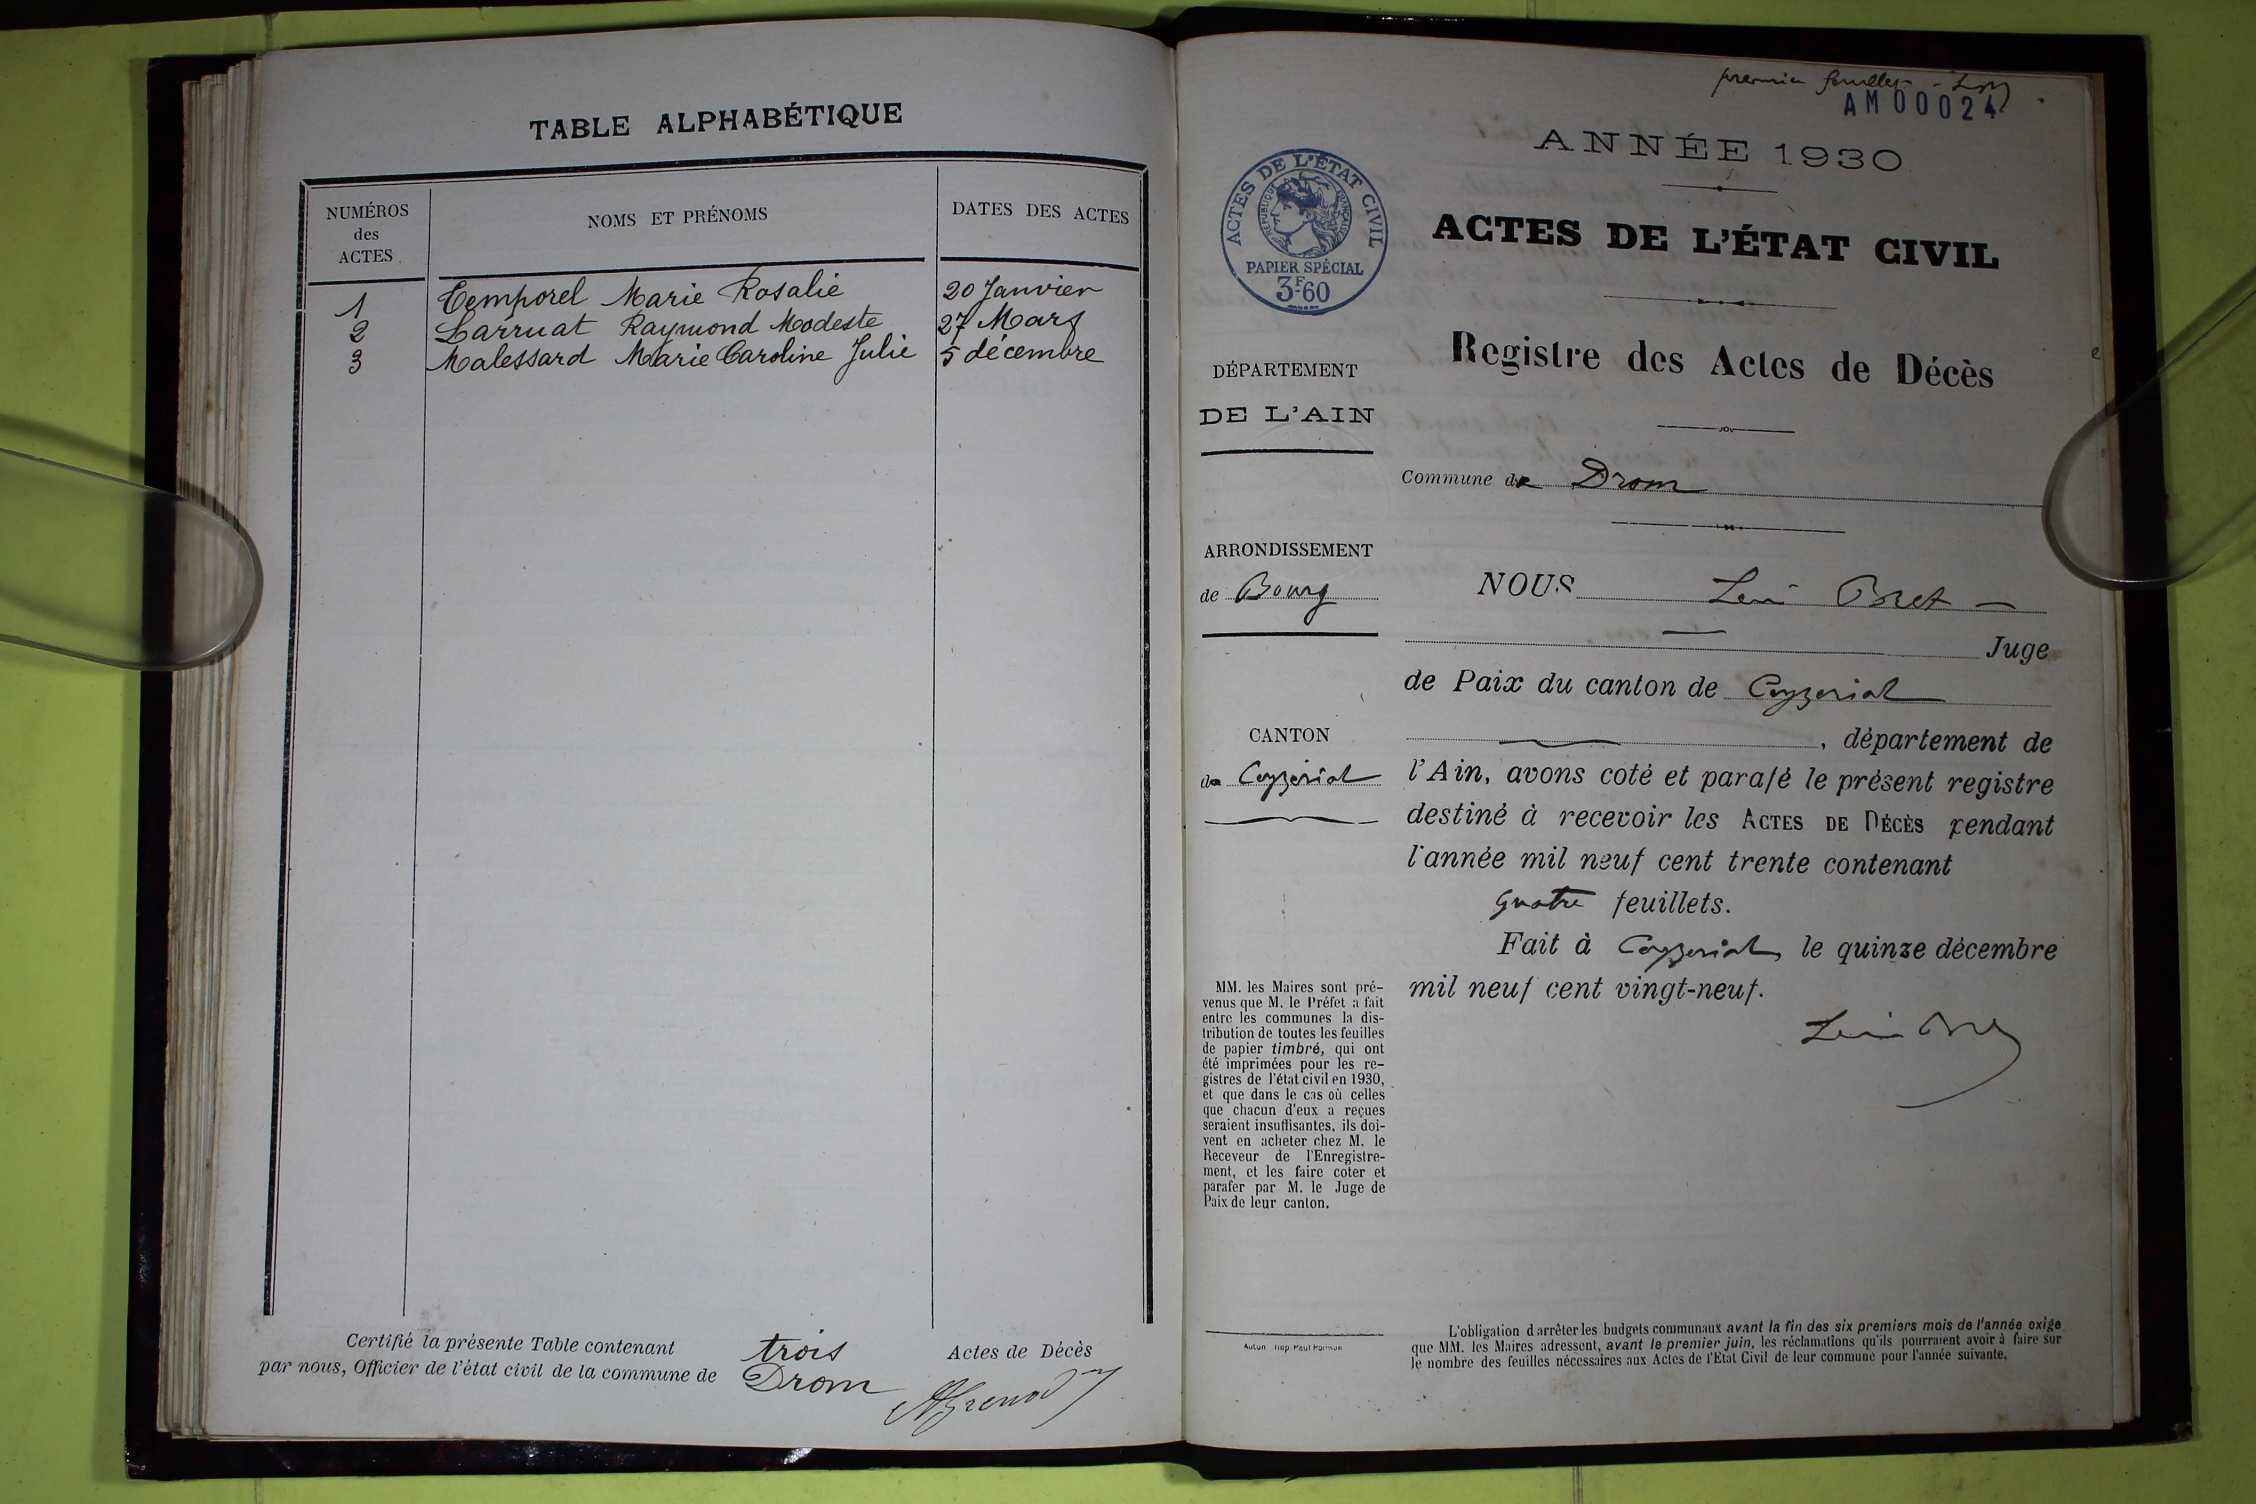 TABLE ALPHABÉTIQUE
NUMÉROS
des
ACTES
NOMS ET PRÉNOMS
DATES DES ACTES
1 Temporel Marie Rosalie 20 Janvier
2 Larruat Raymond Modeste 27 Mars
3 Malessard Marie Caroline Julie 5 décembre
Certifié la présente Table contenant trois Actes de Décès
par nous, Officier de l'état civil de la commune de Drom
premier feuillet
AM00024
ANNÉE 1930
ACTES DE L'ÉTAT CIVIL
RÉPUBLIQUE FRANÇAISE
PAPIER SPÉCIAL
3F60
ACTES DE L'ÉTAT CIVIL
Registre des Actes de Décès
DÉPARTEMENT
DE L'AIN
Commune de Drom
ARRONDISSEMENT
de Bourg
CANTON
de Ceyzériat
NOUS Bret
Juge
de Paix du canton de Ceyzeriat
, département de
l'Ain, avons coté et parafé le présent registre
destiné à recevoir les ACTES DE DÉCÈS pendant
l'année mil neuf cent trente contenant
quatre feuillets.
Fait à Ceyzeriat, le quinze décembre
mil neuf cent vingt-neuf.
MM. les Maires sont pré-
venus que M. le Préfet a fait
entre les communes la dis-
tribution de toutes les feuilles
de papier timbré, qui ont
été imprimées pour les re-
gistres de l'état civil en 1930,
et que dans le cas où celles
que chacun d'eux a reçues
seraient insuffisantes, ils doi-
vent en acheter chez M. le
Receveur de l'Enregistre-
ment, et les faire coter et
parafer par M. le Juge de
Paix de leur canton.
Autun Imp. Paul
L'obligation d'arrêter les budgets communaux avant la fin des six premiers mois de l'année exige
que MM. les Maires adressent, avant le premier juin, les réclamations qu'ils pourraient avoir à faire sur
le nombre des feuilles nécessaires aux Actes de l'Etat Civil de leur commune pour l'année suivante.